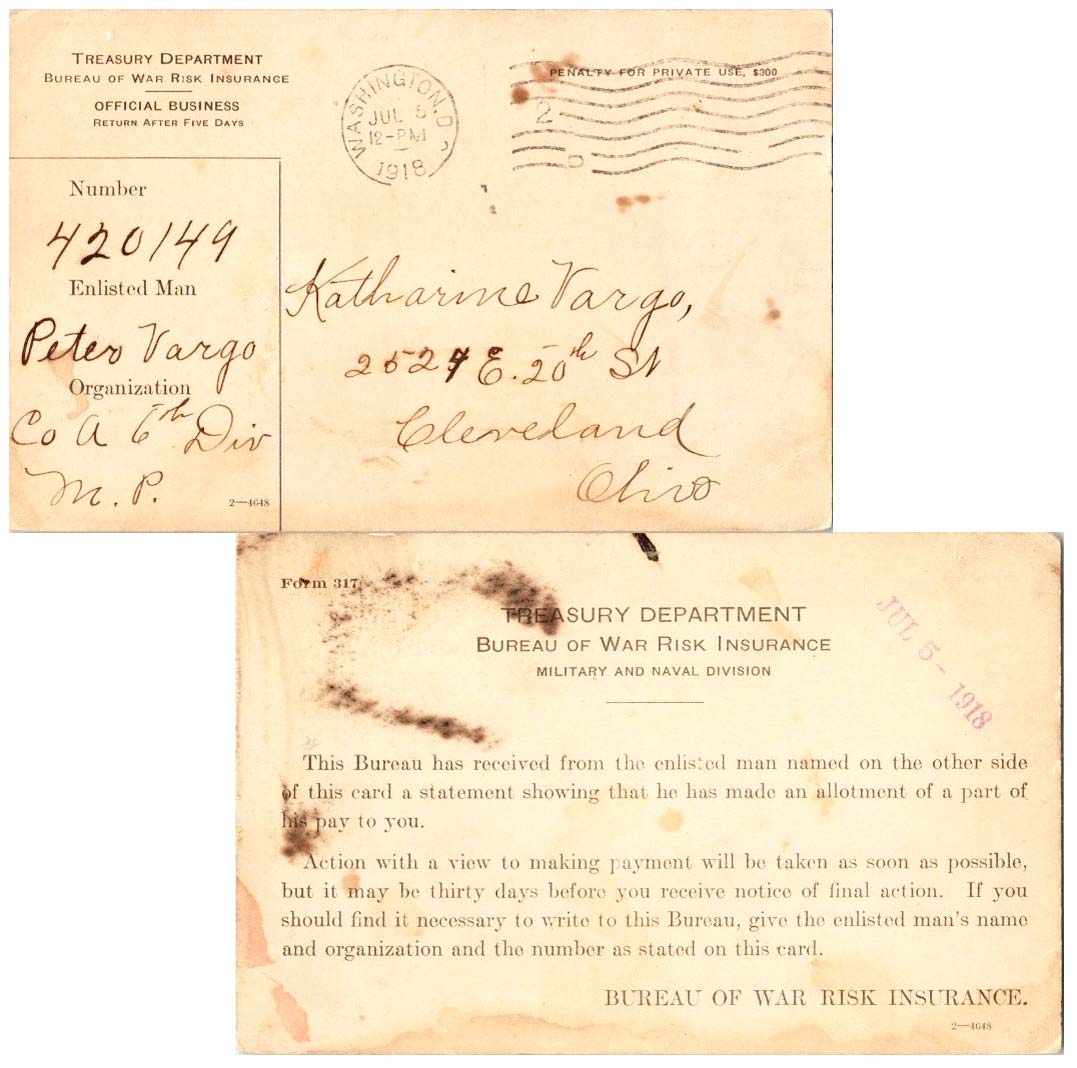 TREASURY DEPARTMENT
BUREAU OF WAR RISK INSURANCE
OFFICIAL BUSINESS
RETURN AFTER FIVE DAYS
WASHINGTON, D.C.
JUL 5
12-PM
1918
PENALTY FOR PRIVATE USE, $300
2
D
Number
420149
Enlisted Man
Peter Vargo
Organization
Co A 6th Div
M. P.
2—4648
Katharine Vargo,
2524 E. 20th St
Cleveland
Ohio
Form 317
TREASURY DEPARTMENT
BUREAU OF WAR RISK INSURANCE
MILITARY AND NAVAL DIVISION
JUL 5 - 1918
This Bureau has received from the enlisted man named on the other side
of this card a statement showing that he has made an allotment of a part of
his pay to you.
Action with a view to making payment will be taken as soon as possible,
but it may be thirty days before you receive notice of final action. If you
should find it necessary to write to this Bureau, give the enlisted man's name
and organization and the number as stated on this card.
BUREAU OF WAR RISK INSURANCE.
2—4648